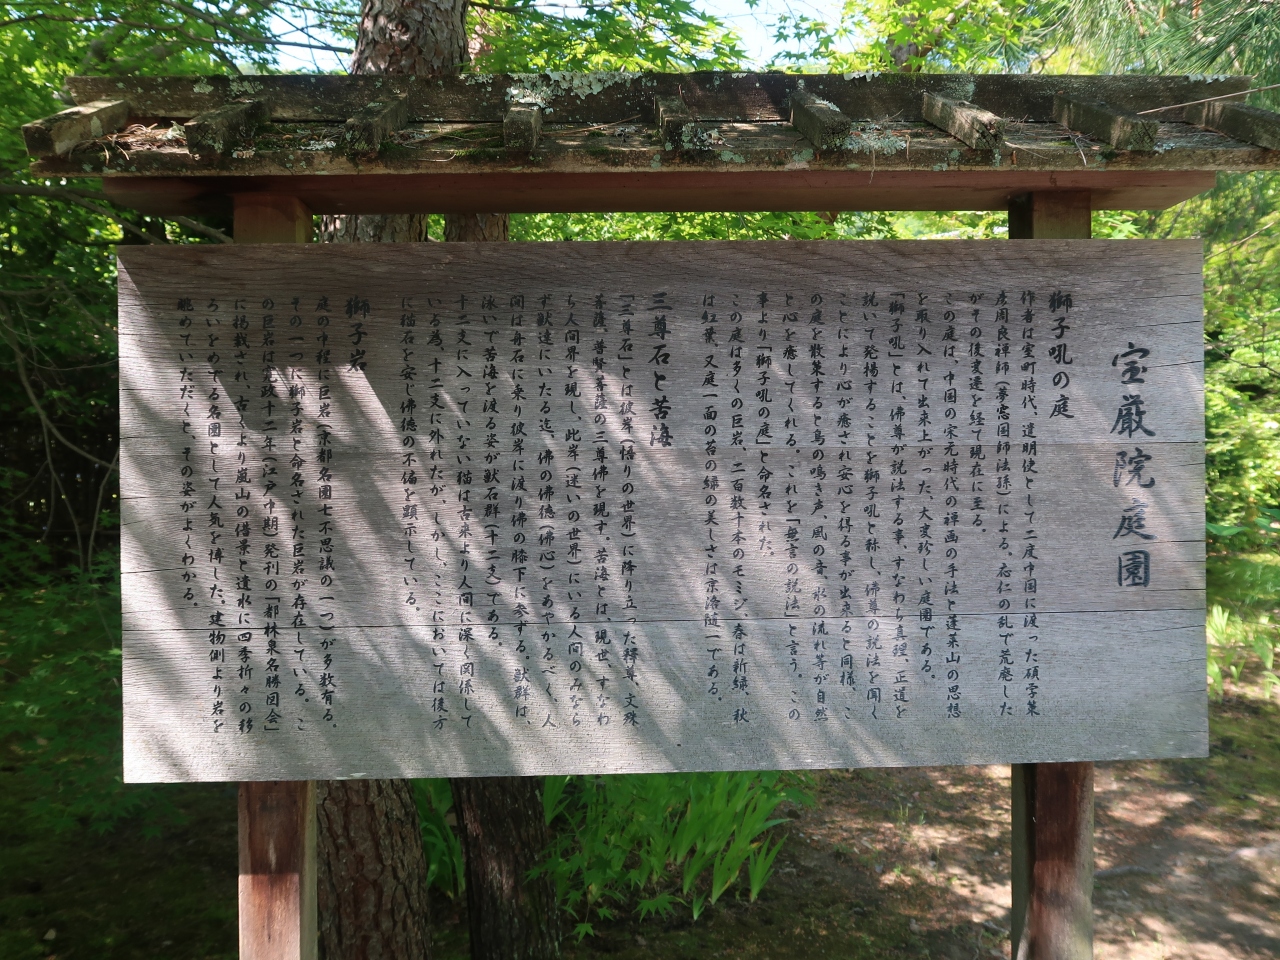 宝厳院庭園
獅子吼の庭
作者は室町時代、遣明使として二度中国に渡った碩学策
彦周良禅師(夢窓国師法孫)による。応仁の乱で荒廃した
がその後変遷を経て現在に至る。
この庭は、中国の宋元時代の禅画の手法と蓬莱山の思想
を取り入れて出来上がった、大変珍しい庭園である。
「獅子吼」とは、佛尊が説法する事、すなわち真理、正道を
説いて発揚することを獅子吼と称し、佛尊の説法を聞く
ことにより心が癒され安心を得る事が出来ると同様、こ
の庭を散策すると鳥の鳴き声、風の音、水の流れ等が自然
と心を癒してくれる。これを「無言の説法」と言う。この
事より「獅子吼の庭」と命名された。
この庭は多くの巨岩、二百数十本のモミジ、春は新緑、秋
は紅葉、又庭一面の苔の緑の美しさは京洛随一である。
三尊石と苦海
「三尊石」とは彼岸(悟りの世界)に降り立った釋尊、文殊
菩薩、普賢菩薩の三尊佛を現す。苦海とは、現世、すなわ
ち人間界を現し、此岸(迷いの世界)にいる人間のみなら
ず獣達にいたる迄、佛の佛徳(佛心)をあやかるべく、人
間は舟石に乗り彼岸に渡り佛の膝下に参ずる。獣群は
泳いで苦海を渡る姿が獣石群(十二支)である。
十二支に入っていない猫は古来より人間に深く関係して
いる為、十二支に外れたが、しかし、ここにおいては後方
に猫石を安じ佛徳の不偏を顕示している。
獅子岩
庭の中程に巨岩(京都名園七不思議の一つ)が多数有る。
その一つに獅子岩と命名された巨岩が存在している。こ
の巨岩は寛政十二年(江戸中期)発刊の「都林泉名勝図会」
に掲載され、古くより嵐山の借景と遣水に四季折々の移
ろいをめでる名園として人気を博した。建物側より岩を
眺めていただくと、その姿がよくわかる。